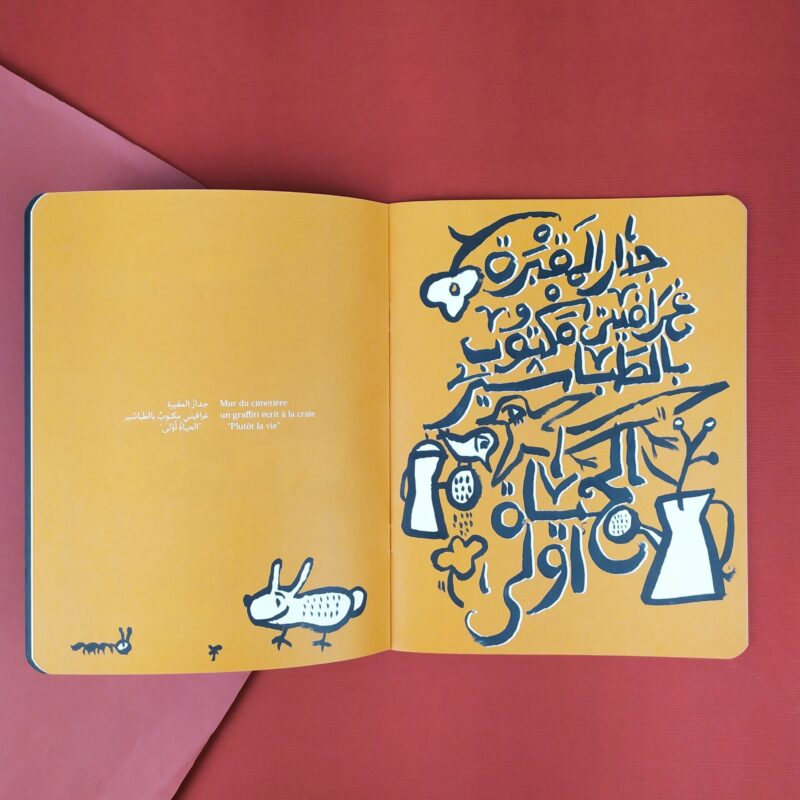 جدارُ المقبرة
غرافيتي مكتوبٌ بالطباشير
"الحياةُ أَوْلى"
Mur du cimetière
un graffiti écrit à la craie
"Plutôt la vie"
جدار المَقْبَرة
غرافيتي مَكْتوب
بالطَباشير
الحياة
أَوْلى